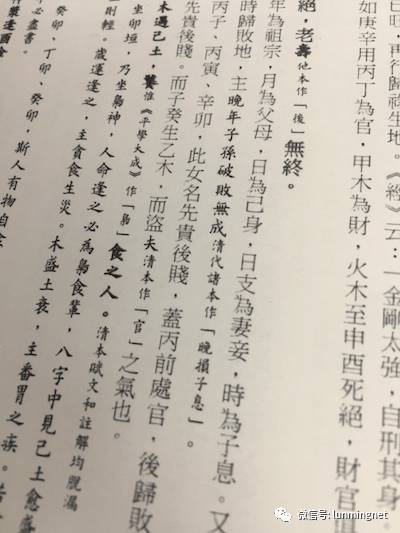 已旺，再行歸祿生地。《經》云：「金剛太強，自刑其身。
如庚辛用丙丁為官，甲木為財，火木至申酉死絕，財官
絕，老壽他本作「後」無終。
年為祖宗，月為父母，日為己身，日支為妻妾，時為子息。又
時歸敗地，主晚年子孫破敗無成清代諸本作「晚損子息」。
丙子、丙寅、辛卯，此女名先貴後賤，蓋丙前處官，後歸敗
先貴後賤。而子癸生乙木，而盜夫清本作「官」之氣也。
木遇己土，惟《平學大成》作「梟」食之人。清本賦文和註解均脫漏
坐卯垣，乃坐梟神，人命逢之必為梟食輩，八字中見己土愈盛
財輕。歲運逢之，主貪食生災。木盛土衰，主番胃之疾。
癸卯、丁卯、癸卯，斯人有物自食
必盡書。
微信号: lunmingnet